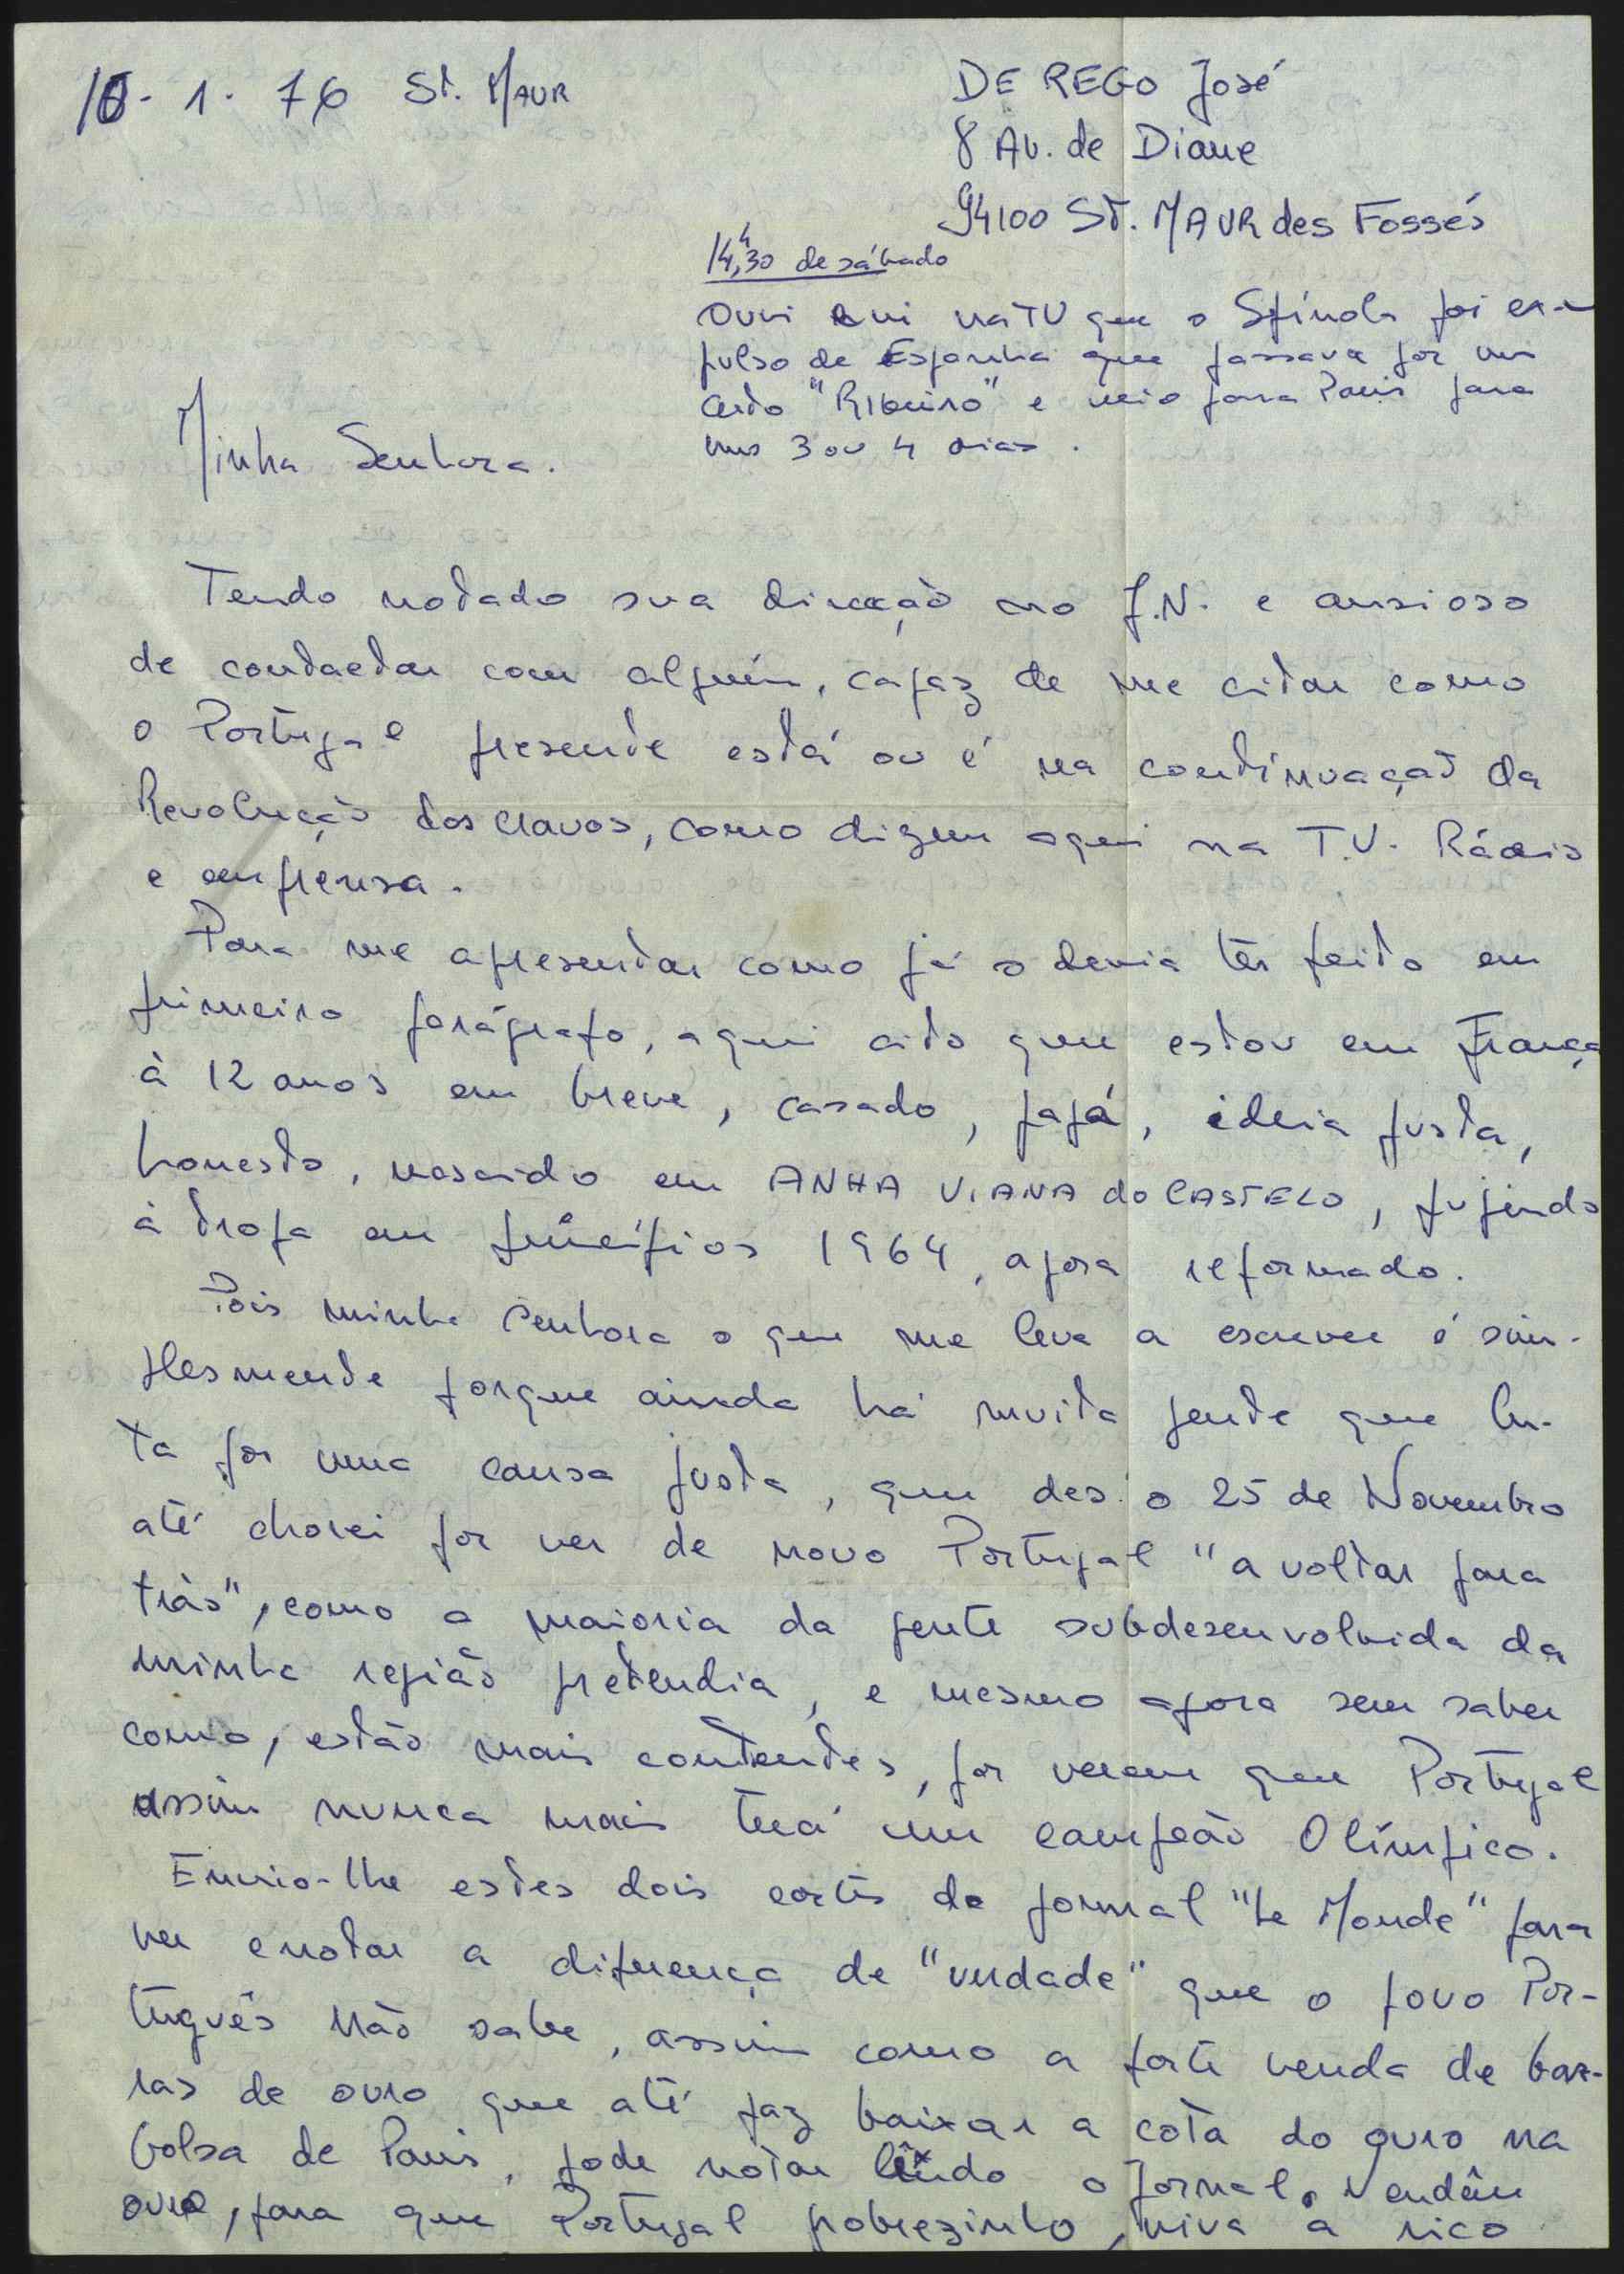 10-1-76 St. MAUR
DE REGO José
8 AV. de Diane
94100 ST. MAUR des Fossés
14,30 de sábado
Ouvi e vi na TV que o Spínola foi ex-
pulso de Espanha que passava por um
certo "Ribeiro" e veio para Paris para
uns 3 ou 4 dias.
Minha Senhora.
Tendo notado sua direcção no J.N. e ansioso
de contactar com alguém, capaz de me citar como
o Portugal presente está ou é na continuação da
Revolução dos Cravos, como dizem aqui na T.V. Rádio
e emprensa.
Para me apresentar como já o devia têr feito em
primeiro parágrafo, aqui cito que estou em França
à 12 anos em breve, casado, papá, ideia justa,
honesto, nascido em ANHA VIANA do CASTELO, fujindo
à tropa em princípios 1964, agora reformado.
Pois minha Senhora o que me leva a escrever é sim-
plesmente porque ainda há muita gente que lu-
ta por uma causa justa, que des o 25 de Novembro
até chorei por ver de novo Portugal "a voltar para
trás", como a maioria da gente subdesenvolvida da
minha região pretendia, e mesmo agora sem saber
como, estão mais contentes, por verem que Portugal
assim nunca mais terá um campeão Olímpico.
Envio-lhe estes dois cortes do jornal "Le Monde" para
ver e notar a diferença de "verdade" que o povo Por-
tuguês não sabe, assim como a forte venda de bar-
ras de ouro que até faz baixar a cota do ouro na
bolsa de Paris, pode notar lendo o Jornal. Vendêm
ouro, para que Portugal pobrezinho, viva a rico